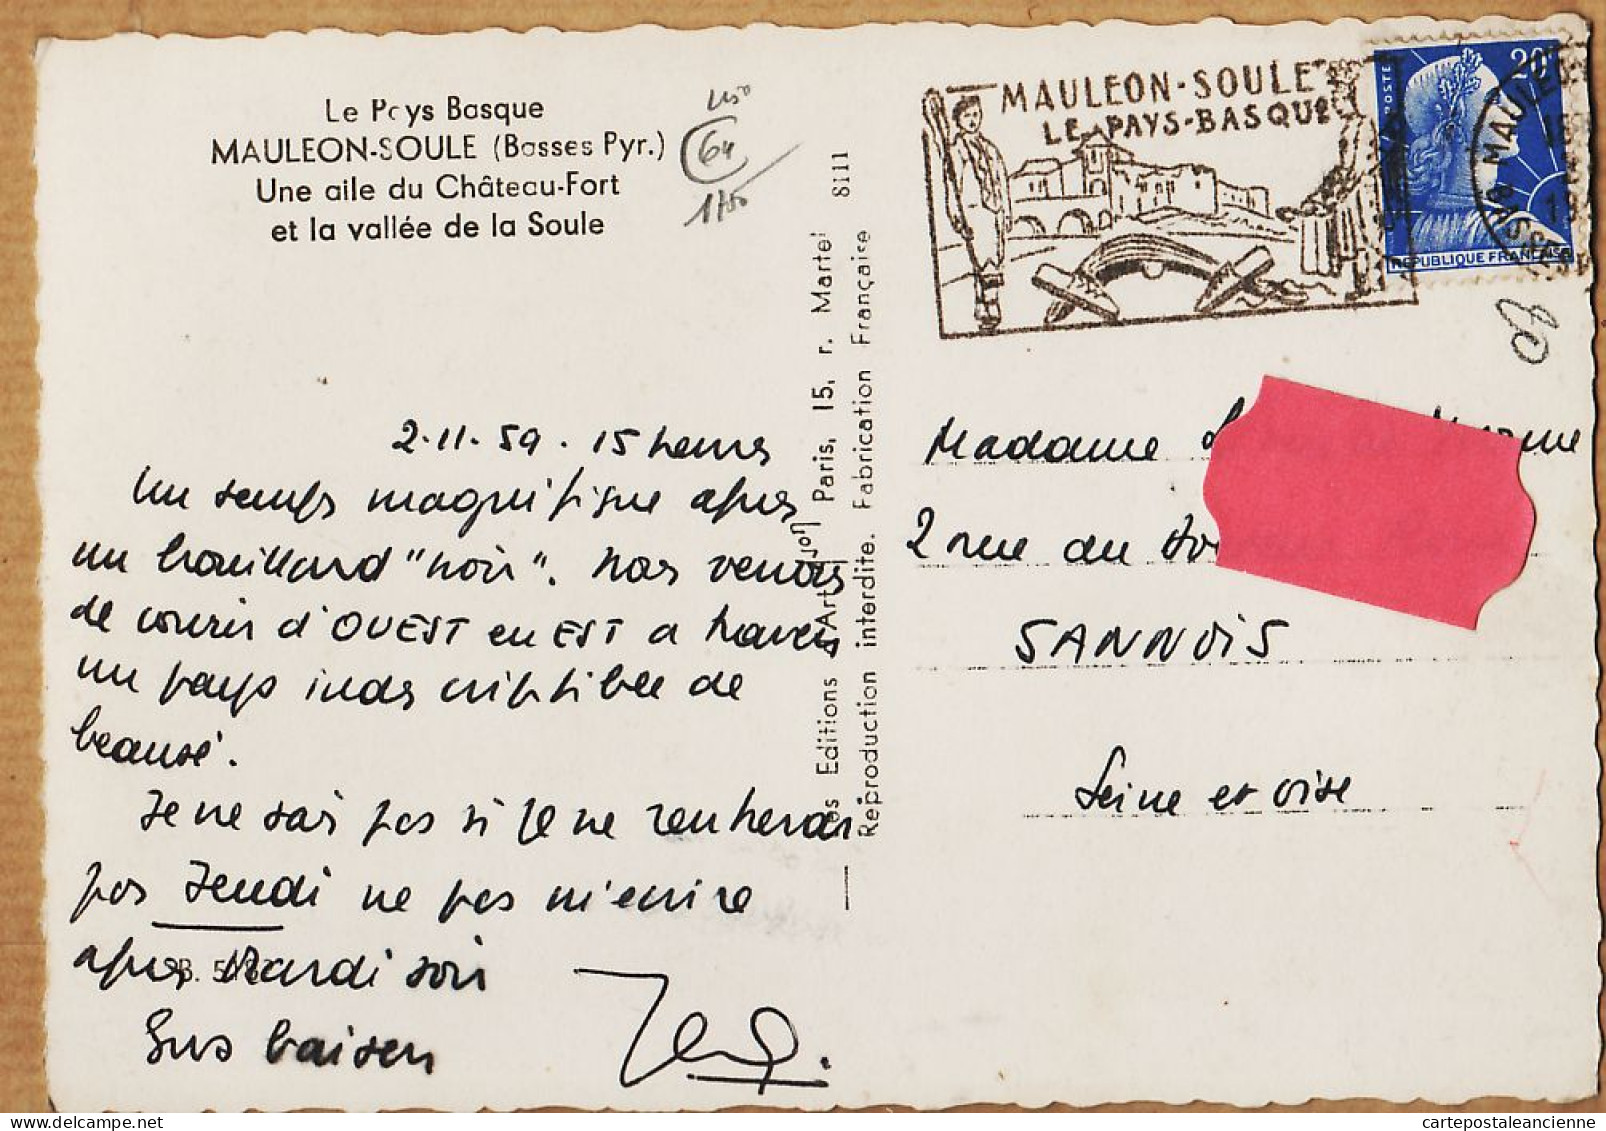 Le Pays Basque
MAULEON-SOULE (Basses Pyr.)
Une aile du Château-Fort
et la vallée de la Soule
64
1750
2.11.59. 15 heures
Un temps magnifique après
un brouillard "noir". Nous venons
de courir d'OUEST en EST a travers
un pays indescriptible de
beauté.
Je ne sais pas si je ne rentrerai
pas Jeudi ne pas m'écrire
après Mardi soir
Gros baisers
Les Editions d'Art Paris, 15, r. Martel 8111
Reproduction interdite. Fabrication Française
MAULEON-SOULE
LE PAYS-BASQUE
20F
POSTES
REPUBLIQUE FRANÇAISE
MAULEON
Madame
2 rue du
SANNOIS
Seine et Oise
cartepostaleancienne